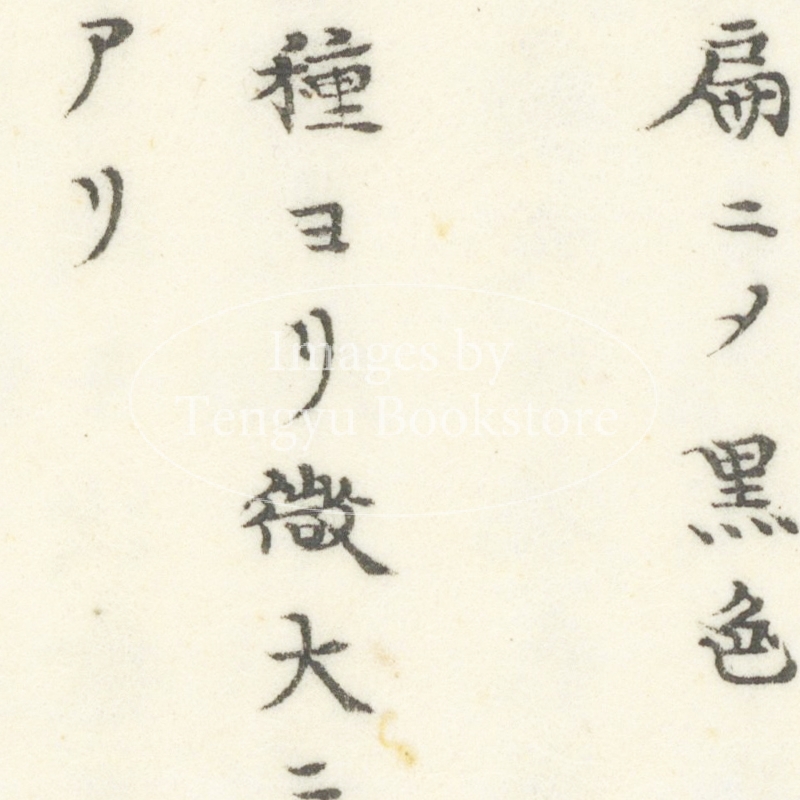 扁ニ〆黒色
種ヨリ微大ニ
アリ
Images by
Tengyu Bookstore